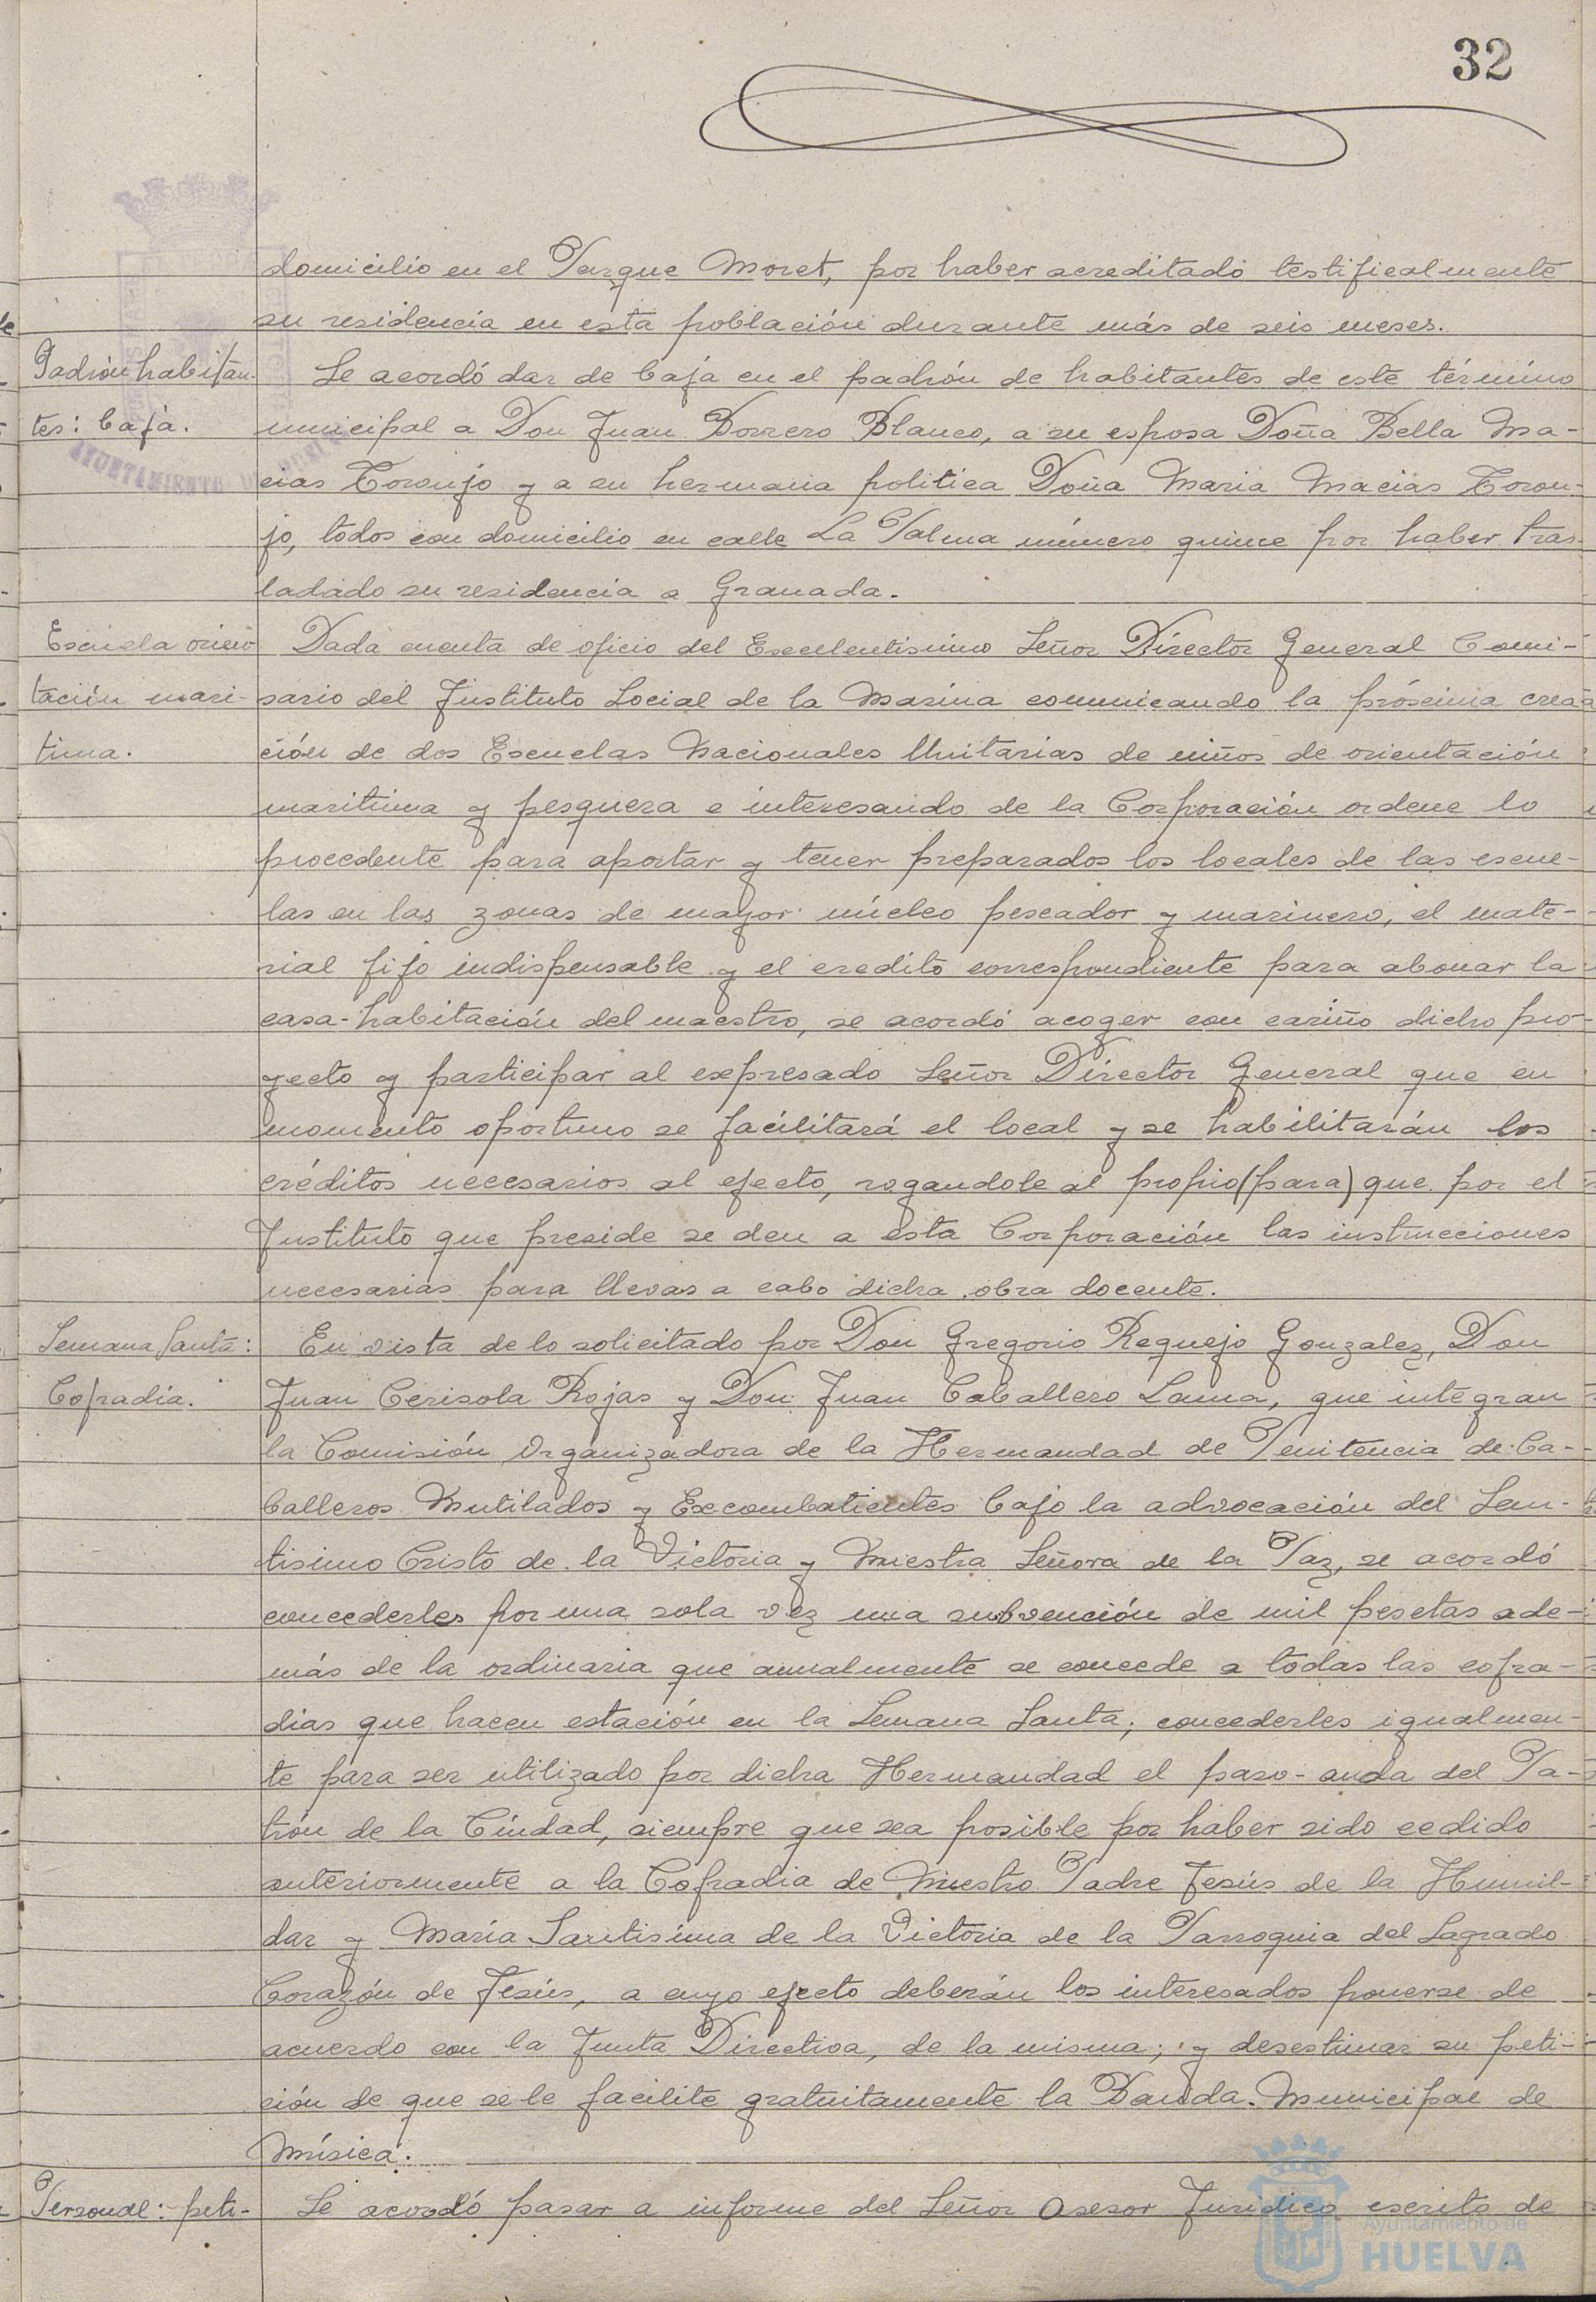 32
domicilio en el Parque Moret, por haber acreditado testificalmente
su residencia en esta población durante más de seis meses.
Padrón habitan-
tes: baja.
Se acordó dar de baja en el padrón de habitantes de este término
municipal a Don Juan Borrero Blanco, a su esposa Doña Bella Ma-
cias Toronjo y a su hermana politica Doña Maria Macias Toron-
jo, todos con domicilio en calle La Palma número quince por haber tras-
ladado su residencia a Granada.
Escuela orien-
tación mari-
tima.
Dada cuenta de oficio del Excelentisimo Señor Director General Comi-
sario del Instituto Social de la Marina comunicando la próxima crea-
ción de dos Escuelas Nacionales Unitarias de niños de orientación
maritima y pesquera e interesando de la Corporación ordene lo
procedente para aportar y tener preparados los locales de las escue-
las en las zonas de mayor núcleo pescador y marinero, el mate-
rial fijo indispensable y el credito correspondiente para abonar la
casa-habitación del maestro, se acordó acoger con cariño dicho pro-
yecto y participar al expresado Señor Director General que en
momento oportuno se facilitará el local y se habilitarán los
créditos necesarios al efecto, rogandole al propio (para) que por el
Instituto que preside se den a esta Corporación las instrucciones
necesarias para llevas a cabo dicha obra docente.
Semana Santa:
Cofradia.
En vista de lo solicitado por Don Gregorio Requejo Gonzalez, Don
Juan Cerisola Rojas y Don Juan Caballero Lama, que integran
la Comisión Organizadora de la Hermandad de Penitencia de Ca-
balleros Mutilados y Excombatientes bajo la advocación del San-
tisimo Cristo de la Victoria y Nuestra Señora de la Paz, se acordó
concederles por una sola vez una subvención de mil pesetas ade-
más de la ordinaria que anualmente se concede a todas las cofra-
dias que hacen estación en la Semana Santa; concederles igualmen-
te para ser utilizado por dicha Hermandad el paso-anda del Pa-
trón de la Ciudad, siempre que sea posible por haber sido cedido
anteriormente a la Cofradia de Nuestro Padre Jesús de la Humil-
dar y María Santisima de la Victoria de la Parroquia del Sagrado
Corazón de Jesús, a cuyo efecto deberán los interesados ponerse de
acuerdo con la Junta Directiva, de la misma; y desestimar su peti-
ción de que se le facilite gratuitamente la Banda Municipal de
Música.
Personal: peti-
Se acordó pasar a informe del Señor Asesor Juridico escrito de
Ayuntamiento de
HUELVA